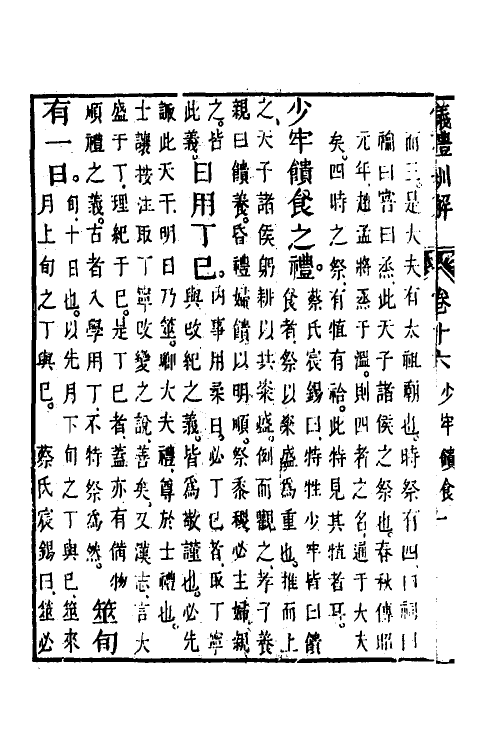 儀禮訓解 卷十六 少牢饋食 一
而三是大夫有太祖廟也時祭有四曰祠曰
禴曰嘗曰烝此天子諸侯之祭也春秋傳昭
元年趙孟將烝于溫則四者之名通于大夫
矣四時之祭有犆有祫此特見其犆者耳
少牢饋食之禮。蔡氏宸錫曰特牲少牢皆曰饋
食者祭以粢盛爲重也推而上
之天子諸侯躬耕以共粢盛倒而觀之孝子養
親曰饋養昏禮婦饋以明順祭黍稷必主婦親
之皆
此義。日用丁巳。內事用柔日必丁巳者取丁寧
與改紀之義皆爲敬謹也必先
諏此天干明日乃筮卿大夫禮尊於士禮也
士讓按注取丁寧改變之說善矣又漢志言大
盛于丁理紀于巳是丁巳者蓋亦有備物
順禮之義古者入學用丁不特祭爲然 筮旬
有一日。旬十日也以先月下旬之丁與巳筮來
月上旬之丁與巳 蔡氏宸錫曰筮必